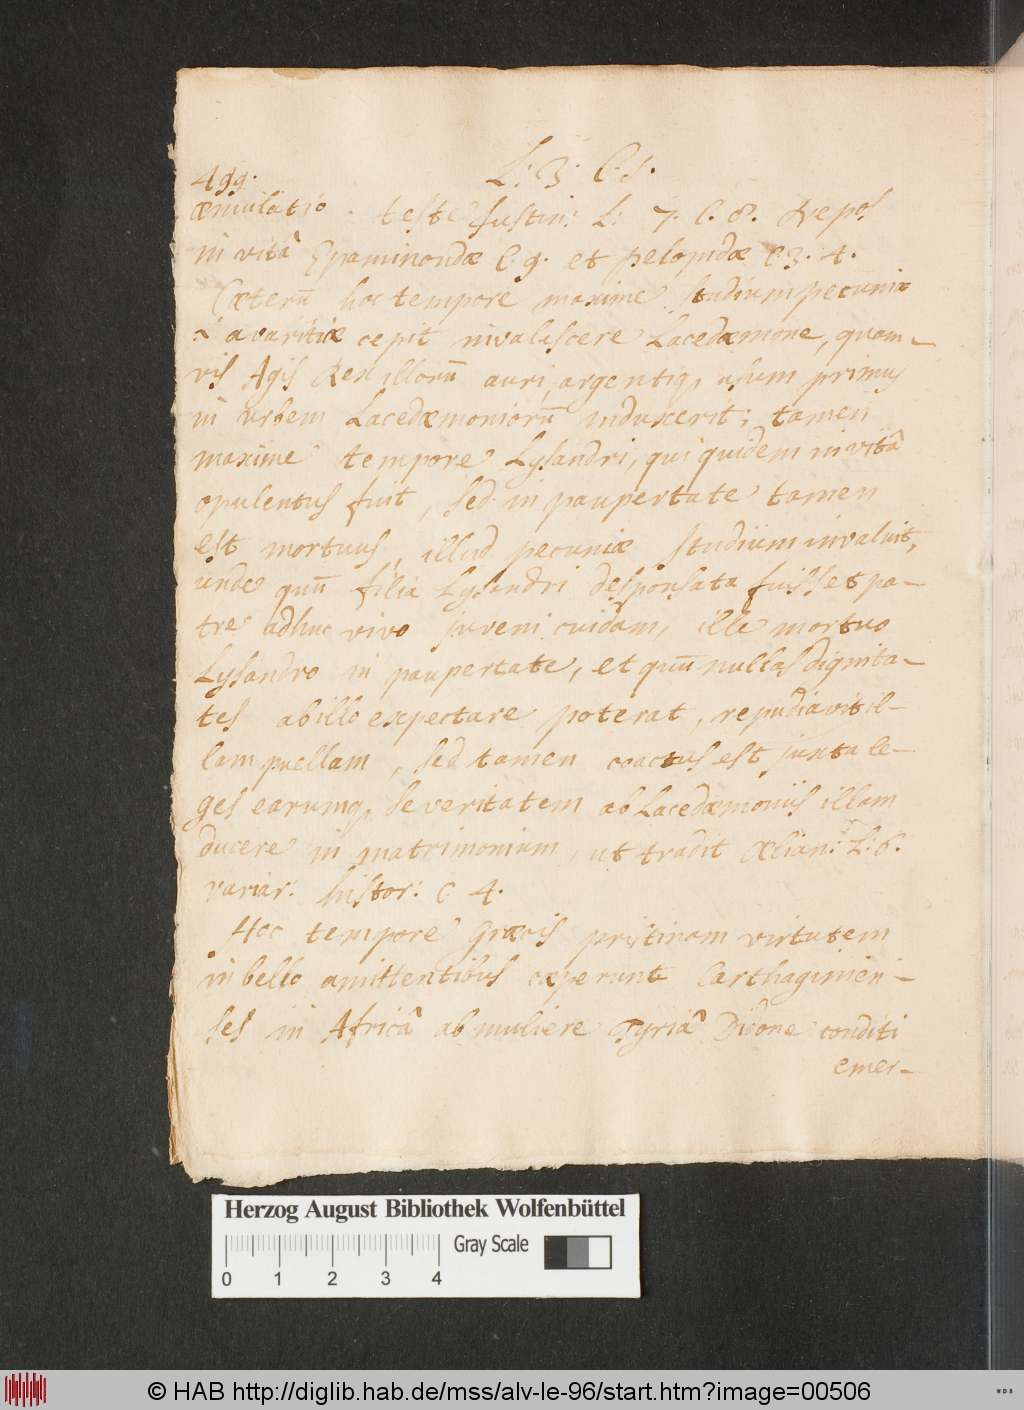 L: 3. C. 5.
499.
æmulatio. teste Justin: L: 7. C. 8. Nepos
in vitâ Epaminondæ C: 9. et pelopidæ C. 3. 4.
Cæterũ hoc tempore maxime studium pecuniæ
avaritiæ cepit invalescere Lacedæmone, quam-
vis Agis Rex illorũ auri, argentiq, usum primus
in urbem Lacedæmoniorũ induxerit; tamen
maxime tempore Lysandri, qui quidem in vitâ
opulentus fuit, sed in paupertate tamen
est mortuus, illud pecuniæ studium invaluit,
unde quũ filia Lysandri desponsata fuisset pa-
tre adhuc vivo juveni cuidam, ille mortuo
Lysandro in paupertate, et quũ nullas dignita-
tes ab illo expectare poterat, repudiavit il-
lam puellam, sed tamen coactus est juxta le-
ges earumq, severitatem ab Lacedæmoniis illam
ducere in matrimonium, ut tradit Ælian: L: 6.
variar: histor: C 4.
Hoc tempore Græcis pristinam virtutem
in bello amittentibus cæperunt Carthaginien-
ses in Africâ ab muliere Tyriâ Didone conditi
emer-
Herzog August Bibliothek Wolfenbüttel
Gray Scale
0 1 2 3 4
© HAB http://diglib.hab.de/mss/alv-le-96/start.htm?image=00506